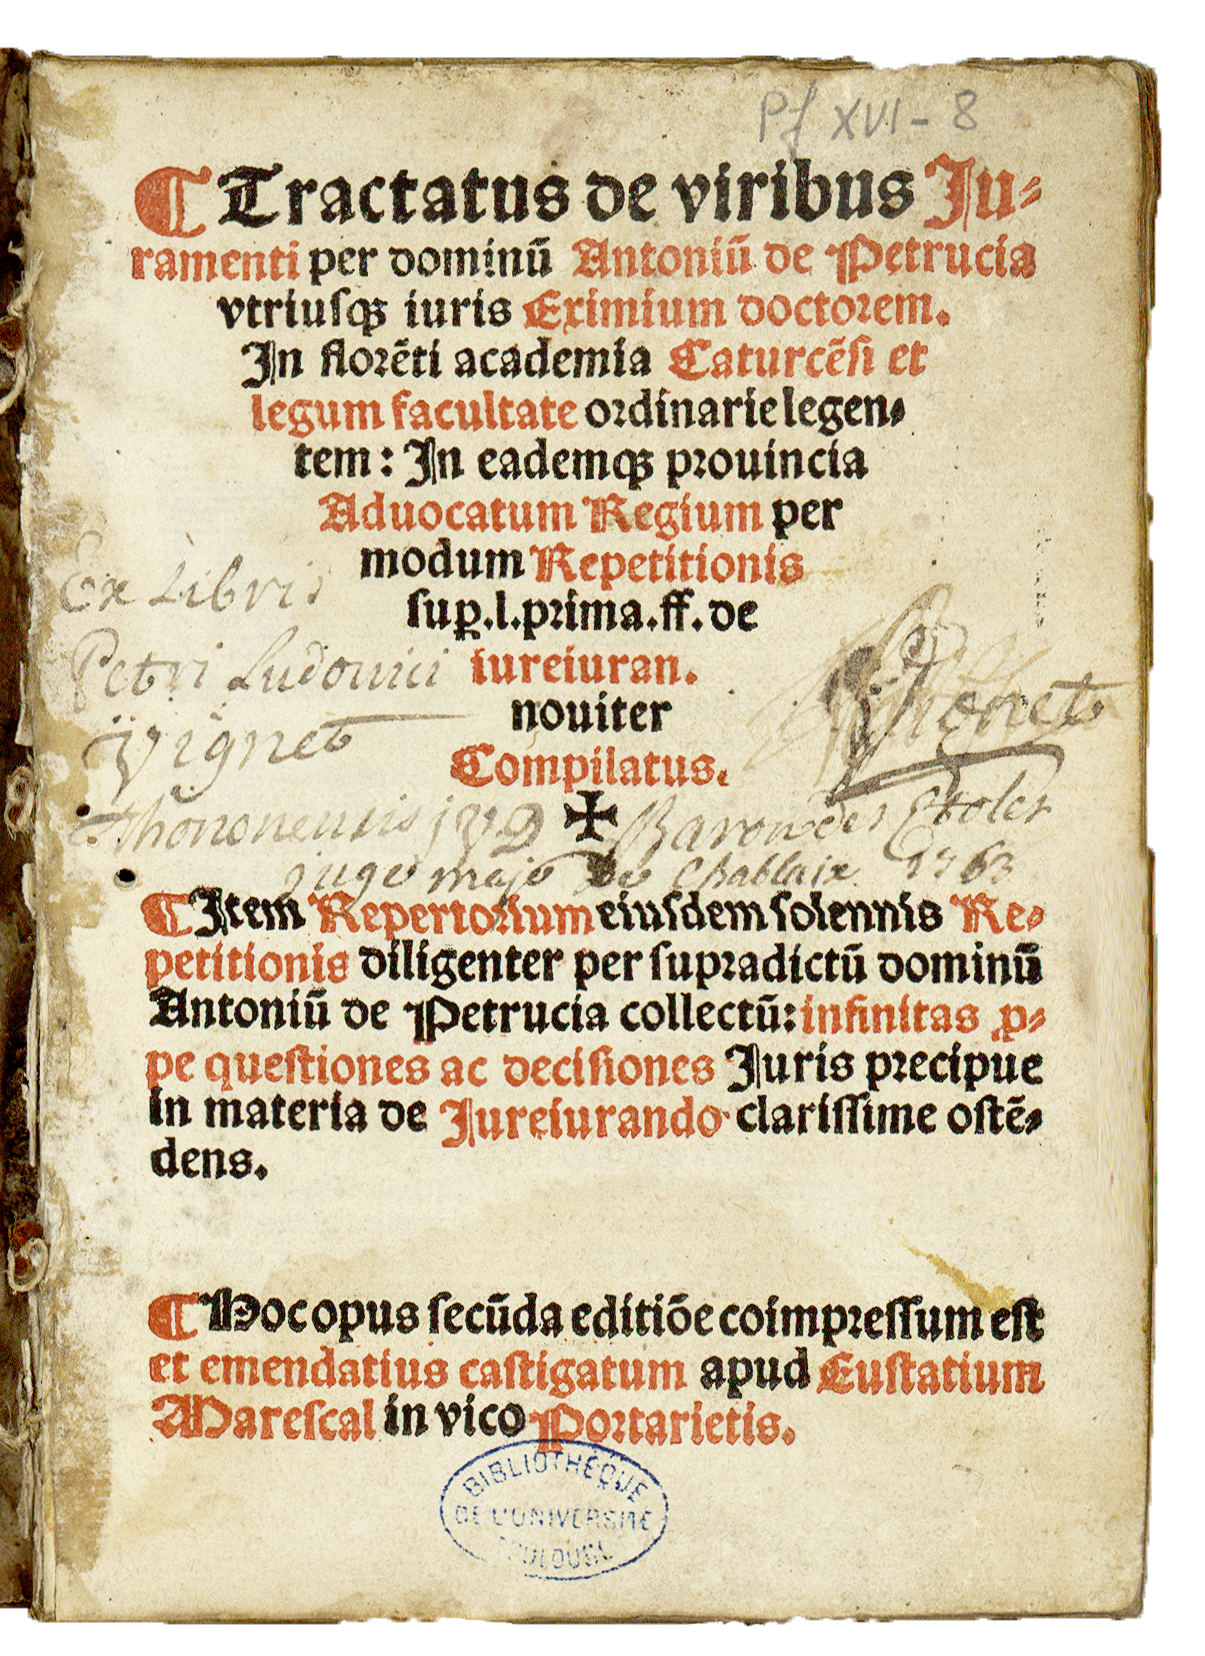 Pf XVI - 8
¶ Tractatus de viribus Ju⸗
ramenti per dominū Antoniū de Petrucia
vtriusqꝫ iuris Eximium doctorem.
In florēti academia Caturcēsi et
legum facultate ordinarie legen⸗
tem: In eademqꝫ prouincia
Aduocatum Regium per
modum Repetitionis
suꝑ.l.prima.ff.de
iureiuran.
nouiter
Compilatus.
✠
Ex Libris
Petri Ludovici
Vignet
Thononensis
Vignet
Baron des Etoles
juge maje de Chablaix 1763
¶ Item Repertorium eiusdem solennis Re⸗
petitionis diligenter per supradictū dominū
Antoniū de Petrucia collectū: infinitas ꝓ⸗
pe questiones ac decisiones Juris precipue
in materia de Jureiurando clarissime ostē⸗
dens.
¶ Hoc opus secūda editiōe coimpressum est
et emendatius castigatum apud Eustatium
Marescal in vico Portarietis.
BIBLIOTHÈQUE
DE L'UNIVERSITÉ
TOULOUSE